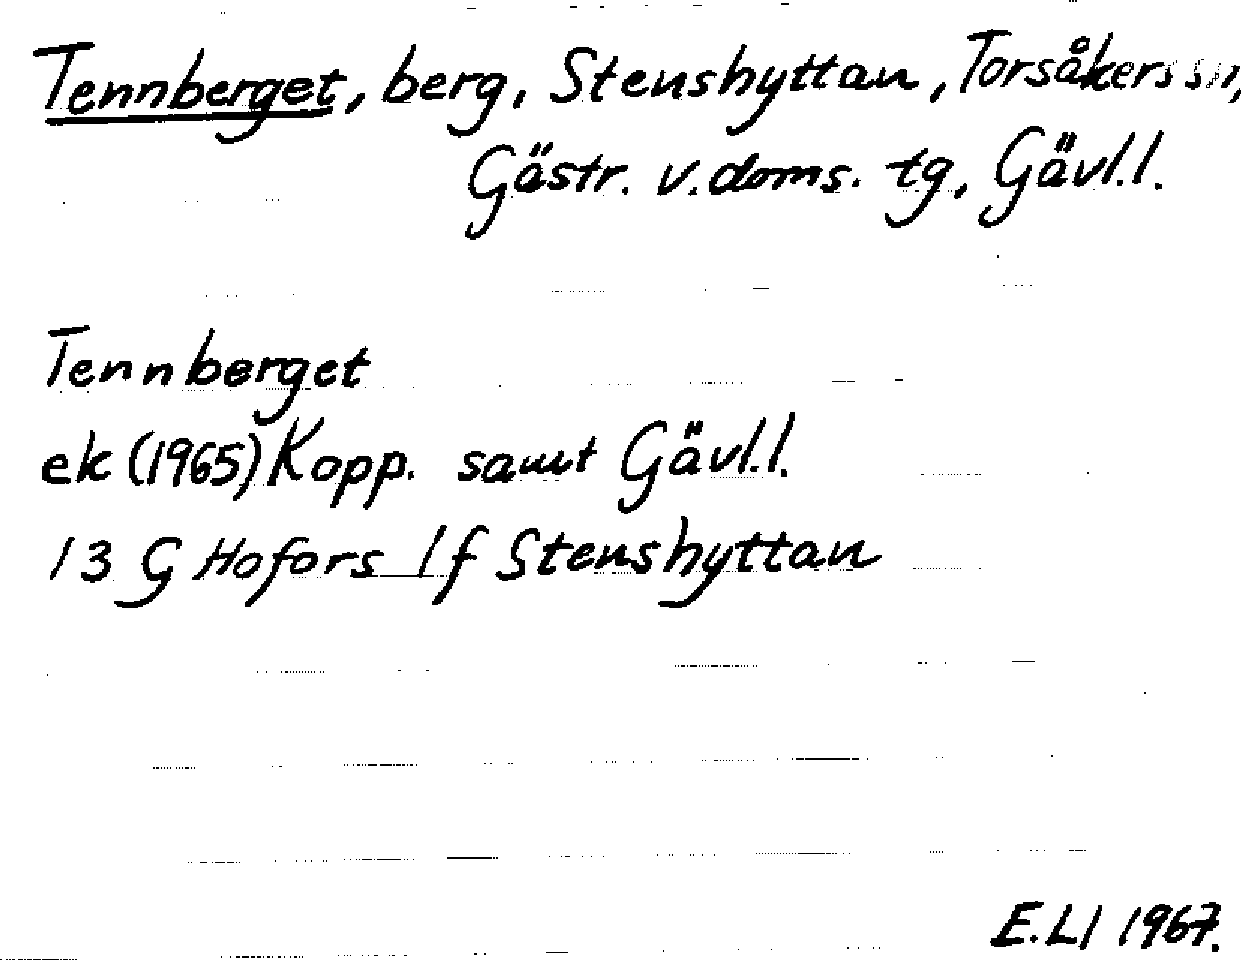 Tennberget, berg, Stenshyttan, Torsåkers sn,
Gästr. v. doms. tg, Gävl.l.
Tennberget
ek (1965) Kopp. samt Gävl.l.
13 G Hofors 1f Stenshyttan
E.Ll 1967.